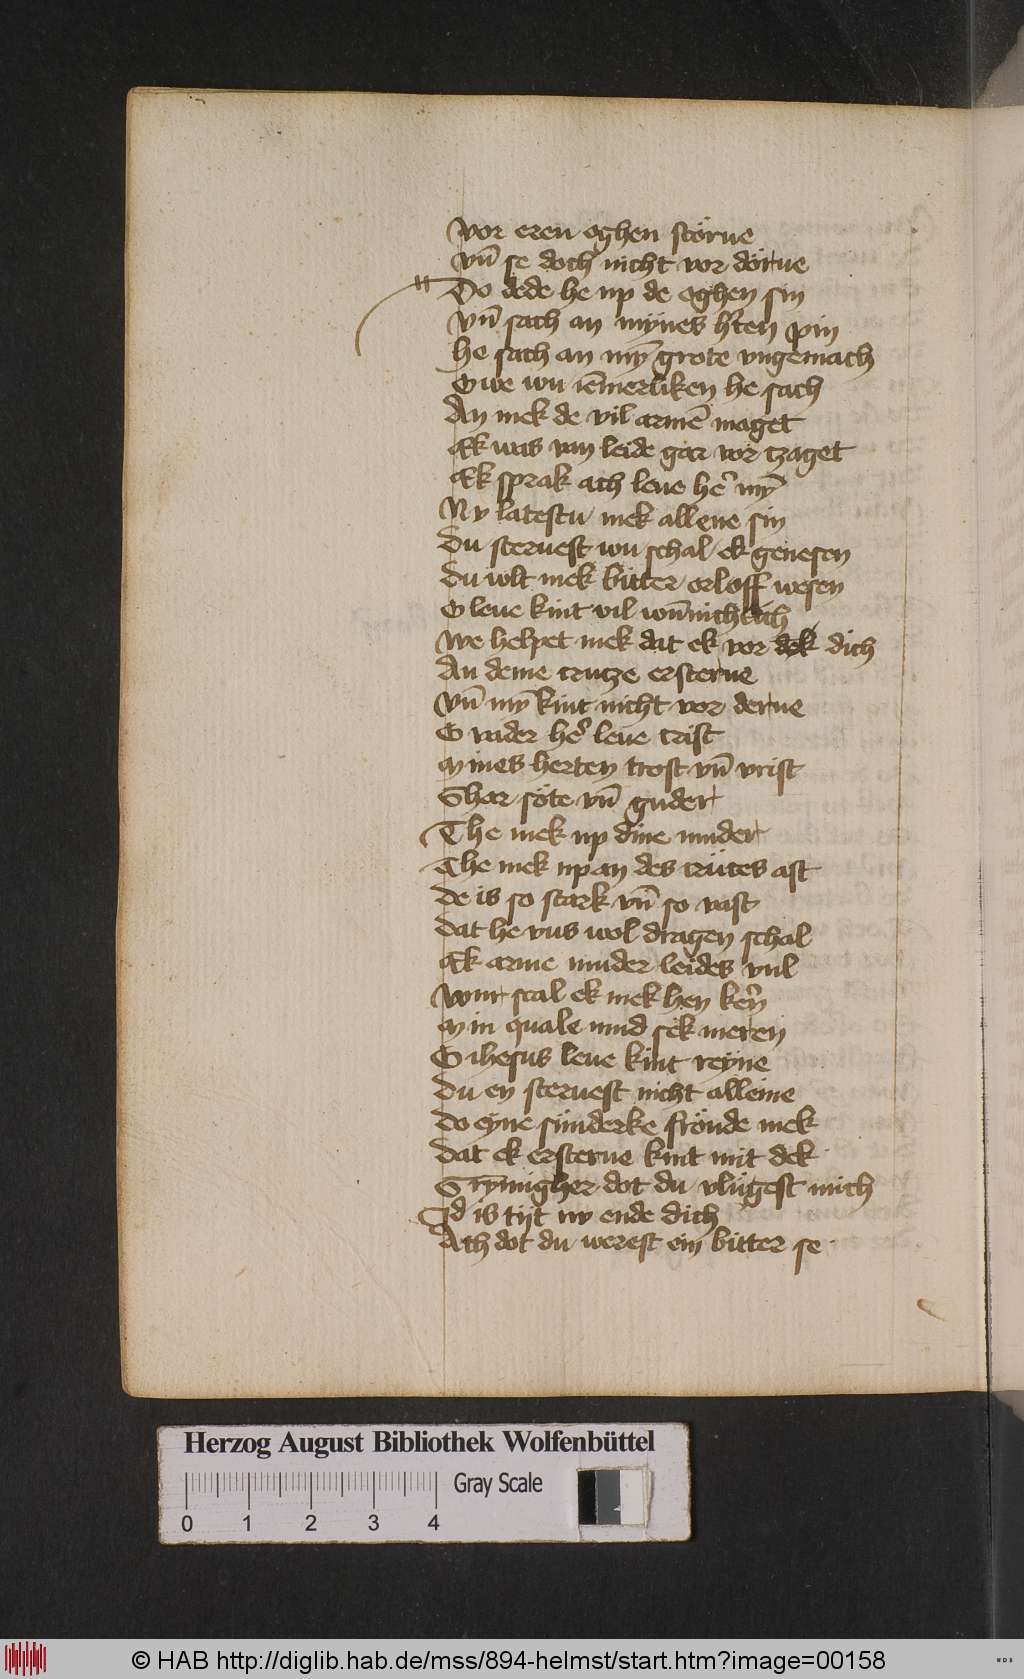 vor eren oghen störue
vn̄ se doch nicht vor dörue
Do dede he up de oghen sin
vn̄ sach an mynes h'ten pin
he sach an my̅ grote vngemach
Owe wu iēmerliken he sach
An mek de vil armē maget
Ek was van leide gar vor tzaget
Ek sprak ach leue he' my̅
Ny latestu mek allene sin
du steruest wu schal ek genesen
du wlt mek bitter orloff wesen
O leue kint vil wūnichlich
we helpet mek dat ek vor dek dich
An deme crutze ersterue
vn̄ my̅ kint nicht vor derue
O vader he' leue crist
Mines herten trost vn̄ vrist
Ghar söte vn̄ guder
The mek up dine muder
The mek up an des crüces ast
de is so stark vn̄ so vast
dat he vns wol dragen schal
Ek arme muder leides vul
wur scal ek mek hen ke'n
Min quale wud sek meren
O ihesus leue kint reyne
du en steruest nicht alleine
do eyne sunderke frönde mek
dat ek ersterue kint mit dek
Grȳmigher dot du vlügest mich
Id is tijt ny ende dich
Ach dot du werest ein bitter se
Herzog August Bibliothek Wolfenbüttel
Gray Scale
0 1 2 3 4
© HAB http://diglib.hab.de/mss/894-helmst/start.htm?image=00158